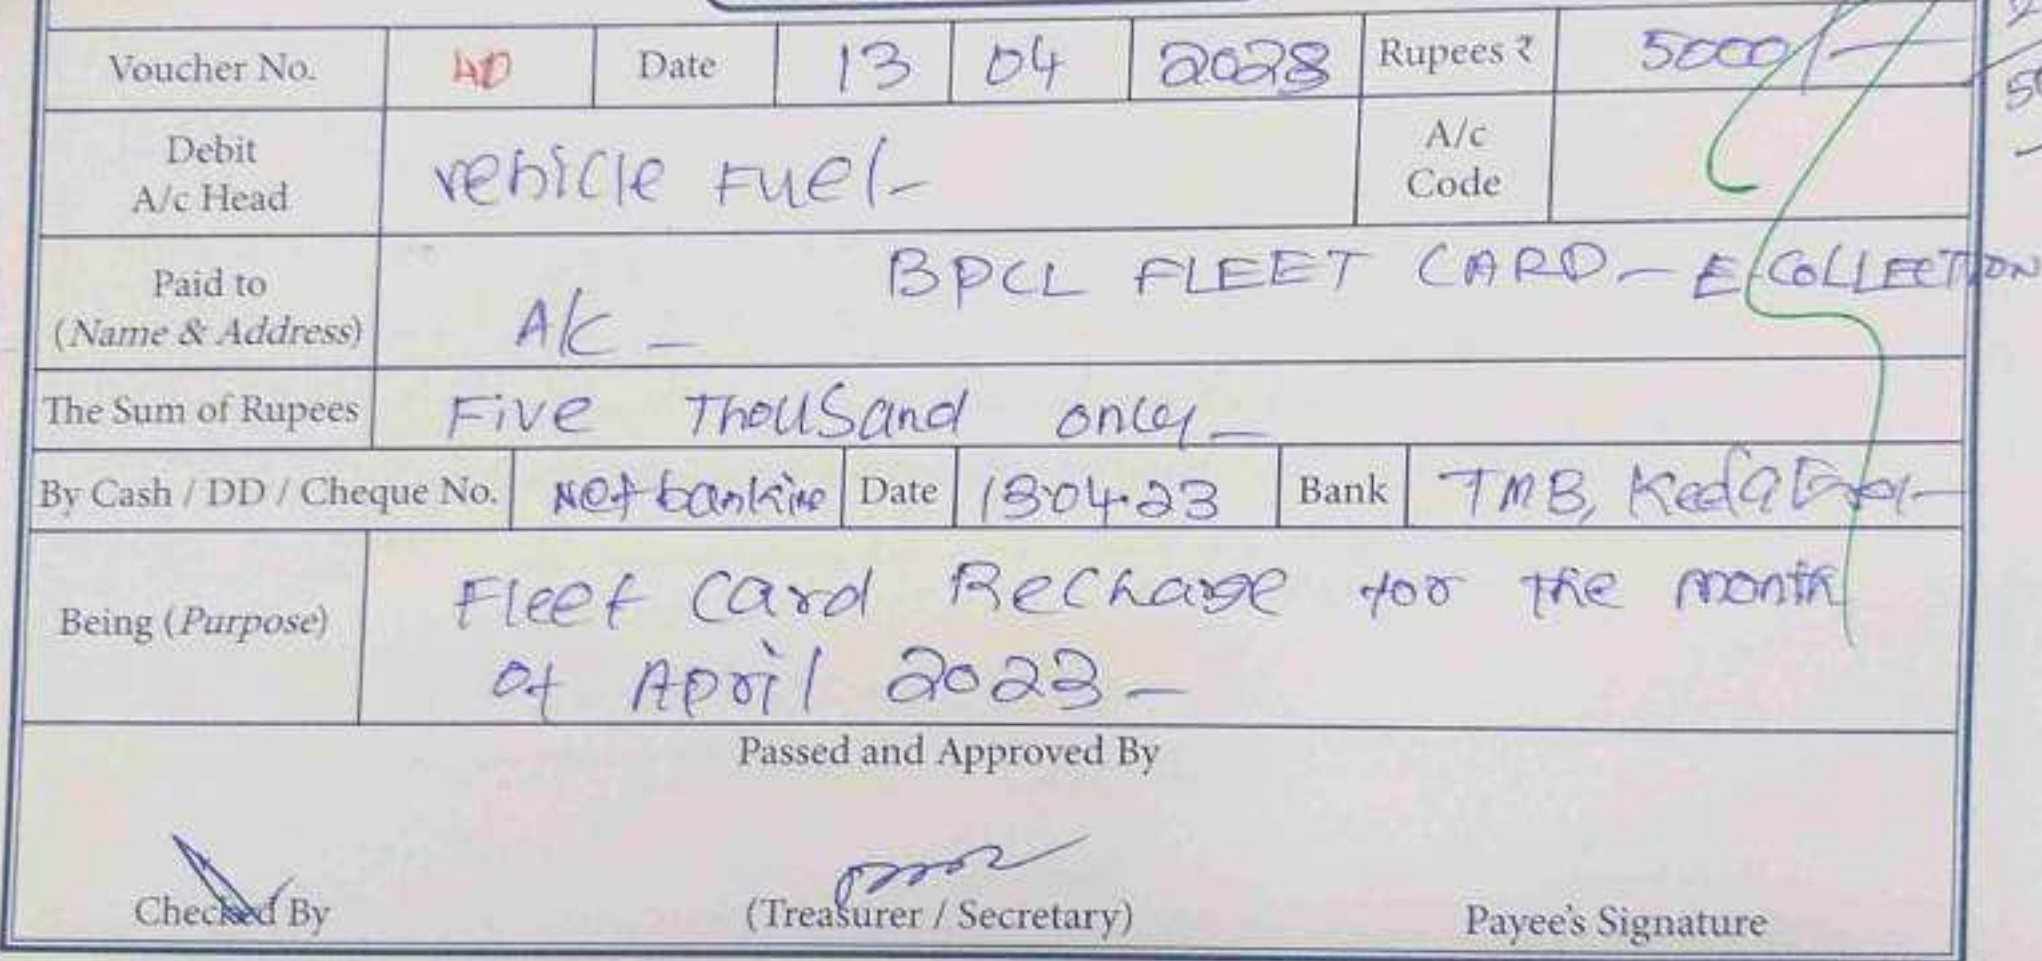 Voucher No. 40 Date 13 04 2023 Rupees ₹ 5000/-
Debit
A/c Head
vehicle Fuel-
A/c
Code
Paid to
(Name & Address)
BPCL FLEET CARD - E COLLECTION
A/c -
The Sum of Rupees Five Thousand only -
By Cash / DD / Cheque No. Net banking Date 13.04.23 Bank TMB,
Being (Purpose)
Fleet Card Recharge for the month
of April 2023 -
Passed and Approved By
Checked By (Treasurer / Secretary) Payee's Signature